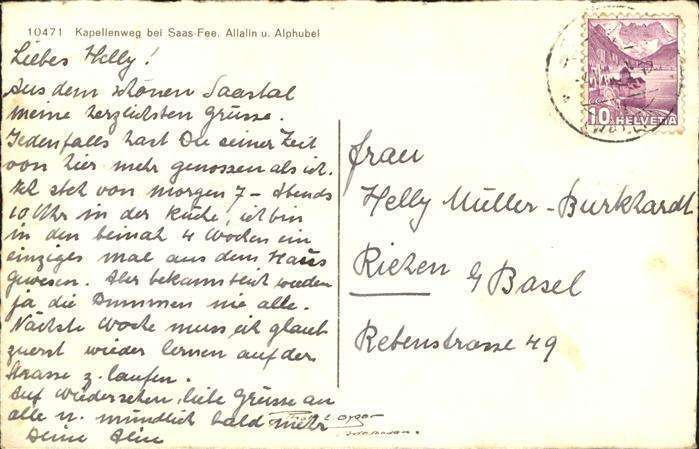 10471 Kapellenweg bei Saas-Fee. Allalin u. Alphubel
Liebes Helly!
Aus dem schönen Saastal
meine herzlichsten Grüsse.
Jedenfalls hast Du seiner Zeit
von hier mehr genossen als ich.
Ich steh von morgen 7 – Abends
10 Uhr in der Küche, ich bin
in den beinah 4 Wochen ein
einziges mal aus dem Haus
gewesen. Aber bekanntlich werden
ja die Dummen nie alle.
Nächste Woche muss ich glaub
zuerst wieder lernen auf der
Strasse z. laufen.
Auf Wiedersehen, liebe Grüsse an
alle u. mündlich bald mehr
Deine
10 HELVETIA
Frau
Helly Müller-Burkhardt
Riehen b/ Basel
Rebenstrasse 49